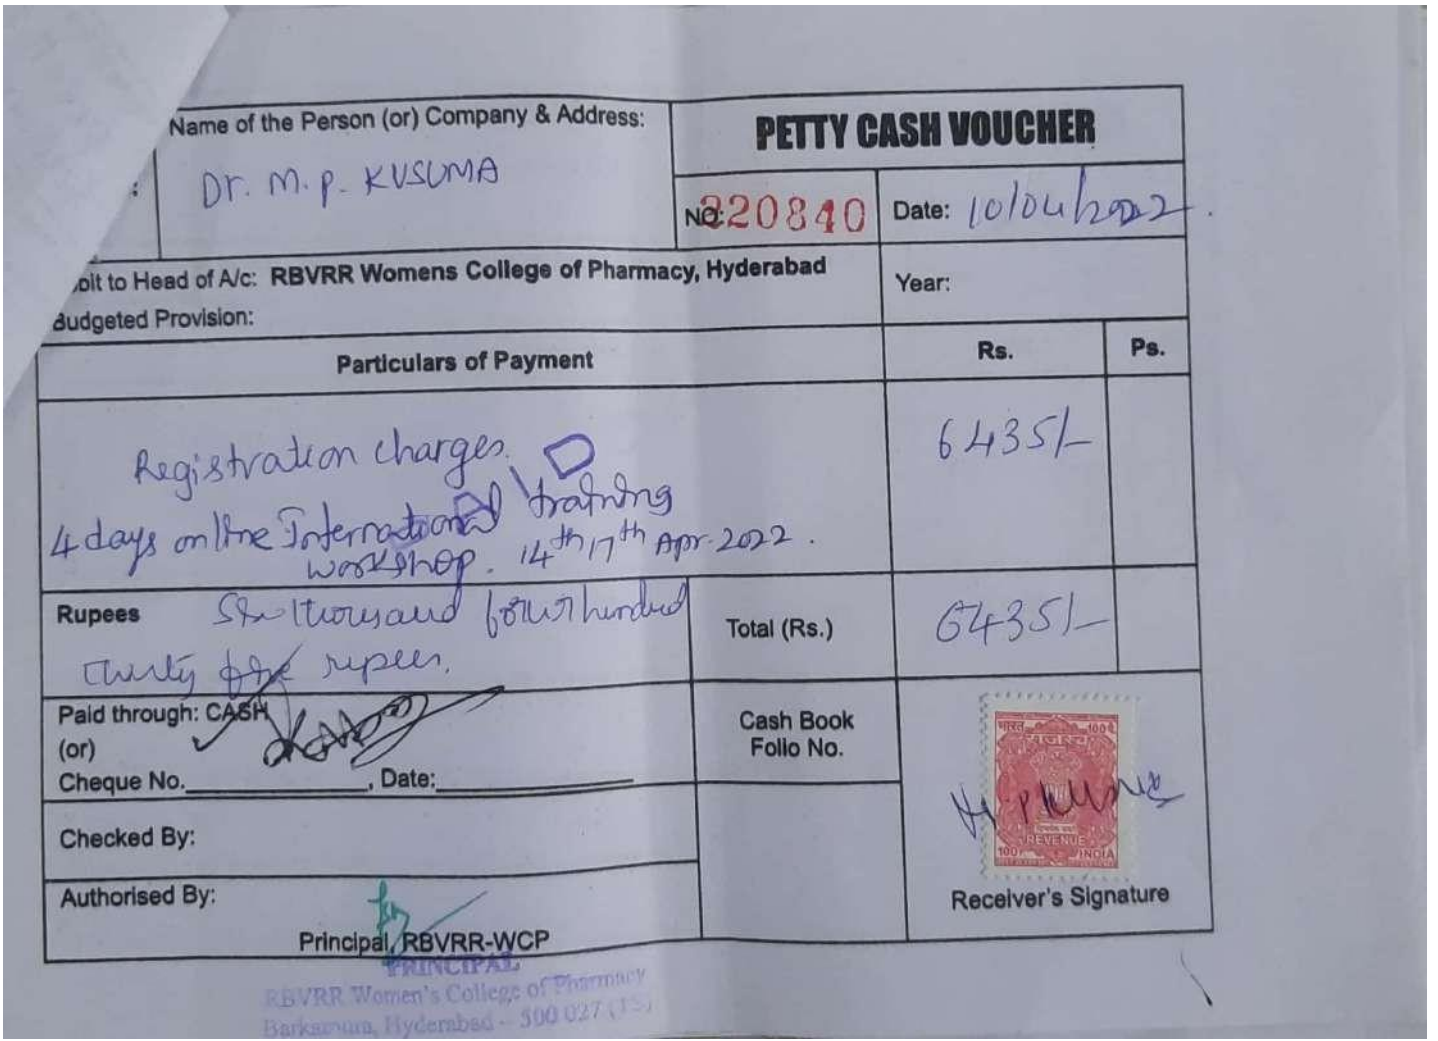 Name of the Person (or) Company & Address:
Dr. M. P. KUSUMA
PETTY CASH VOUCHER
NO: 220840
Date: 10/04/2022
bit to Head of A/c: RBVRR Womens College of Pharmacy, Hyderabad
Budgeted Provision:
Year:
Particulars of Payment
Rs.
Ps.
Registration charges.
6435/-
4 days online International training
workshop. 14th 17th Apr. 2022.
Rupees Six thousand four hundred
thirty five rupees.
Total (Rs.)
6435/-
Paid through: CASH
(or)
Cheque No. , Date:
Cash Book
Folio No.
भारत
100
राजस्व
REVENUE
100
INDIA
M. P Kusuma
Checked By:
Authorised By:
Receiver's Signature
Principal, RBVRR-WCP
PRINCIPAL
RBVRR Women's College of Pharmacy
Barkatpura, Hyderabad – 500 027 (TS)